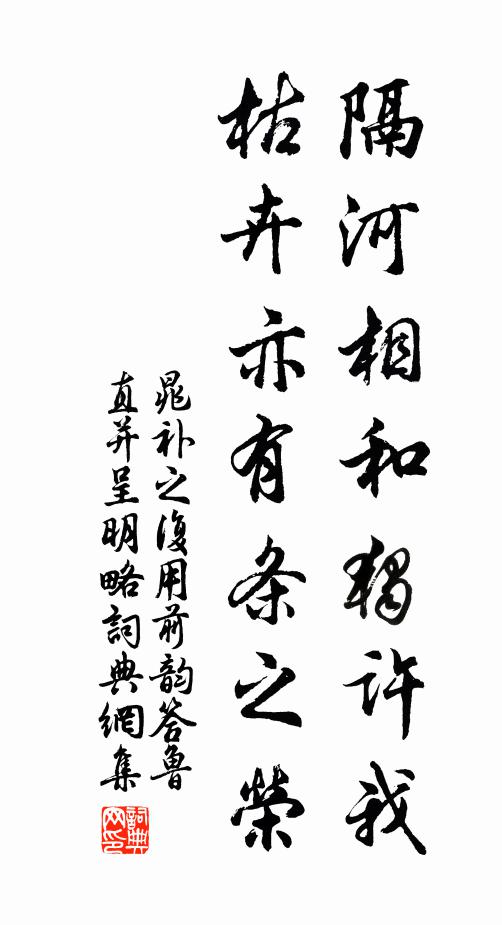 隔河相和獨許我
枯卉亦有条之榮
晁补之復用前韵答魯
直并呈明略詞典網集
詞典网印